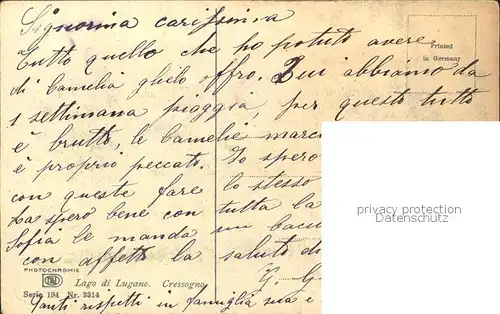 Signorina carissima
Tutto quello che ho potuto avere
di Camelia glielo offro. Qui abbiamo da
1 settimana pioggia, per questo tutto
è brutto, le Camelie marc
è proprio peccato. Io spero
con queste fare lo stesso
La spero bene con tutta la
Sofia le manda un baci
con affetto la saluto di
Printed
in Germany
privacy protection
Datenschutz
PHOTOCHROMIE
Lago di Lugano. Cressogno
Serie 194 Nr. 3314
Tanti rispetti in famiglia sua e